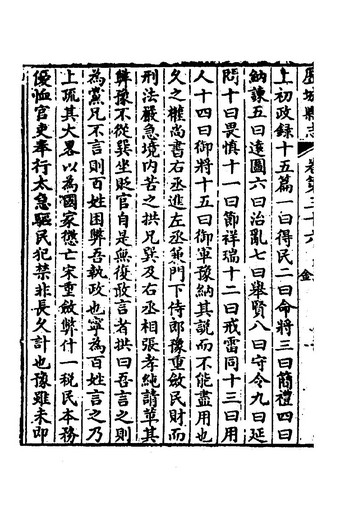 歷城縣志　卷第三十六　金
上初政録十五篇一曰得民二曰命將三曰簡禮四曰
納諫五曰遠圖六曰治亂七曰舉賢八曰守令九曰延
問十曰畏慎十一曰節祥瑞十二曰戒雷同十三曰用
人十四曰御將十五曰御軍豫納其說而不能盡用也
久之權尚書右丞進左丞兼門下侍郎豫重斂民財而
刑法嚴急境內苦之拱兄巽及右丞相張孝純請革其
弊豫不從巽坐貶官自是無復敢言者拱曰吾言之則
為黨兄不言則百姓困弊吾執政也寧為百姓言之乃
上疏其大畧以為國家懲亡宋重斂弊什一稅民本務
優恤官吏奉行太急驅民犯禁非長久計也豫雖未即